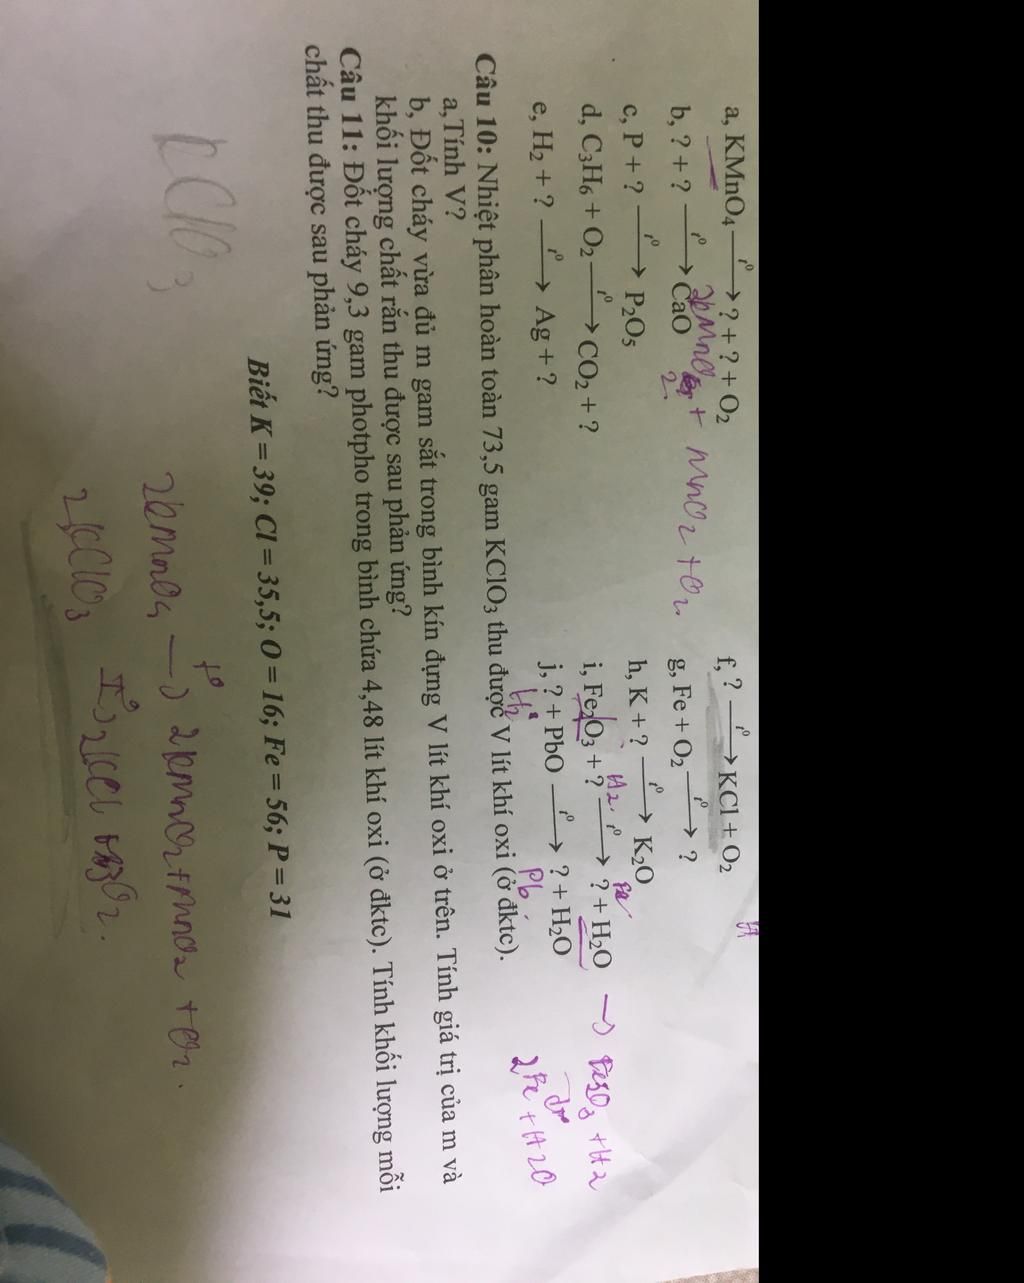 a, KMnO₄ —t⁰→ ? + ? + O₂
f, ? —t⁰→ KCl + O₂
b, ? + ? —t⁰→ CaO
g, Fe + O₂ —t⁰→ ?
c, P + ? —t⁰→ P₂O₅
h, K + ? —t⁰→ K₂O
d, C₃H₆ + O₂ —t⁰→ CO₂ + ?
i, Fe₂O₃ + ? —t⁰→ ? + H₂O
e, H₂ + ? —t⁰→ Ag + ?
j, ? + PbO —t⁰→ ? + H₂O
+ MnO₂ + O₂.
H₂
H₂
Pb
2Fe + H2O
Câu 10: Nhiệt phân hoàn toàn 73,5 gam KClO₃ thu được V lít khí oxi (ở đktc).
a,Tính V?
b, Đốt cháy vừa đủ m gam sắt trong bình kín đựng V lít khí oxi ở trên. Tính giá trị của m và
khối lượng chất rắn thu được sau phản ứng?
Câu 11: Đốt cháy 9,3 gam photpho trong bình chứa 4,48 lít khí oxi (ở đktc). Tính khối lượng mỗi
chất thu được sau phản ứng?
Biết K = 39; Cl = 35,5; O = 16; Fe = 56; P = 31
KClO₃
2KMnO₄ —t⁰→ + MnO₂ + O₂.
2KClO₃ t⁰→ 2KCl 3O₂.